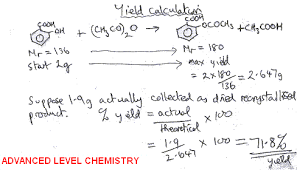 Yield calculation
COOH
OH
+ (CH3CO)2O → 
COOH
OCOCH3 + CH3COOH
Mr = 136
Mr = 180
start 2g
max yield
= 2 × 180/136 = 2.647g
Suppose 1.9g actually collected as dried recrystallised
product. % yield = actual/theoretical × 100
= 1.9/2.647 × 100 = 71.8%
yield
ADVANCED LEVEL CHEMISTRY